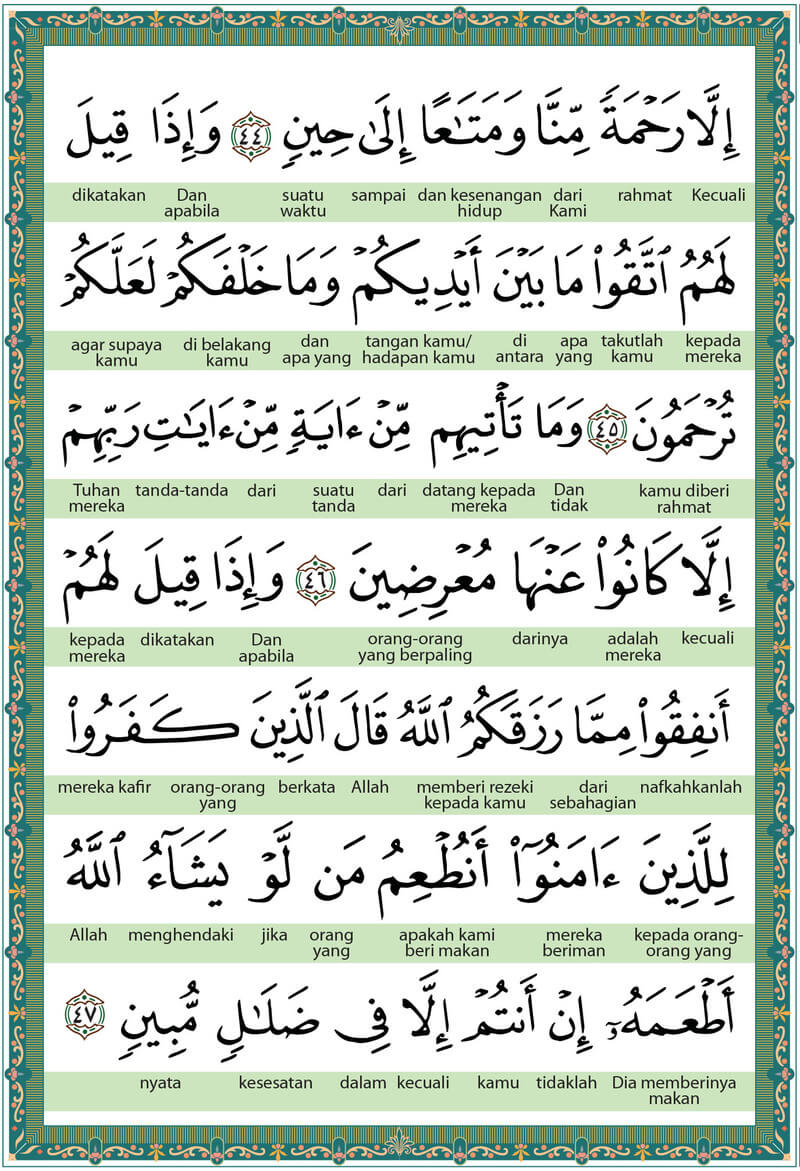 إِلَّا رَحْمَةً مِّنَّا وَمَتَـٰعًا إِلَىٰ حِينٍ ٤٤ وَإِذَا قِيلَ
dikatakan Dan apabila suatu waktu sampai dan kesenangan hidup dari Kami rahmat Kecuali
لَهُمُ ٱتَّقُوا۟ مَا بَيْنَ أَيْدِيكُمْ وَمَا خَلْفَكُمْ لَعَلَّكُمْ
agar supaya kamu di belakang kamu dan apa yang tangan kamu/ hadapan kamu di antara apa yang takutlah kamu kepada mereka
تُرْحَمُونَ ٤٥ وَمَا تَأْتِيهِم مِّنْ ءَايَةٍ مِّنْ ءَايَـٰتِ رَبِّهِمْ
Tuhan mereka tanda-tanda dari suatu tanda dari datang kepada mereka Dan tidak kamu diberi rahmat
إِلَّا كَانُوا۟ عَنْهَا مُعْرِضِينَ ٤٦ وَإِذَا قِيلَ لَهُمْ
kepada mereka dikatakan Dan apabila orang-orang yang berpaling darinya adalah mereka kecuali
أَنفِقُوا۟ مِمَّا رَزَقَكُمُ ٱللَّهُ قَالَ ٱلَّذِينَ كَفَرُوا۟
mereka kafir orang-orang yang berkata Allah memberi rezeki kepada kamu dari sebahagian nafkahkanlah
لِلَّذِينَ ءَامَنُوٓا۟ أَنُطْعِمُ مَن لَّوْ يَشَآءُ ٱللَّهُ
Allah menghendaki jika orang yang apakah kami beri makan mereka beriman kepada orang-orang yang
أَطْعَمَهُۥٓ إِنْ أَنتُمْ إِلَّا فِى ضَلَـٰلٍ مُّبِينٍ ٤٧
nyata kesesatan dalam kecuali kamu tidaklah Dia memberinya makan